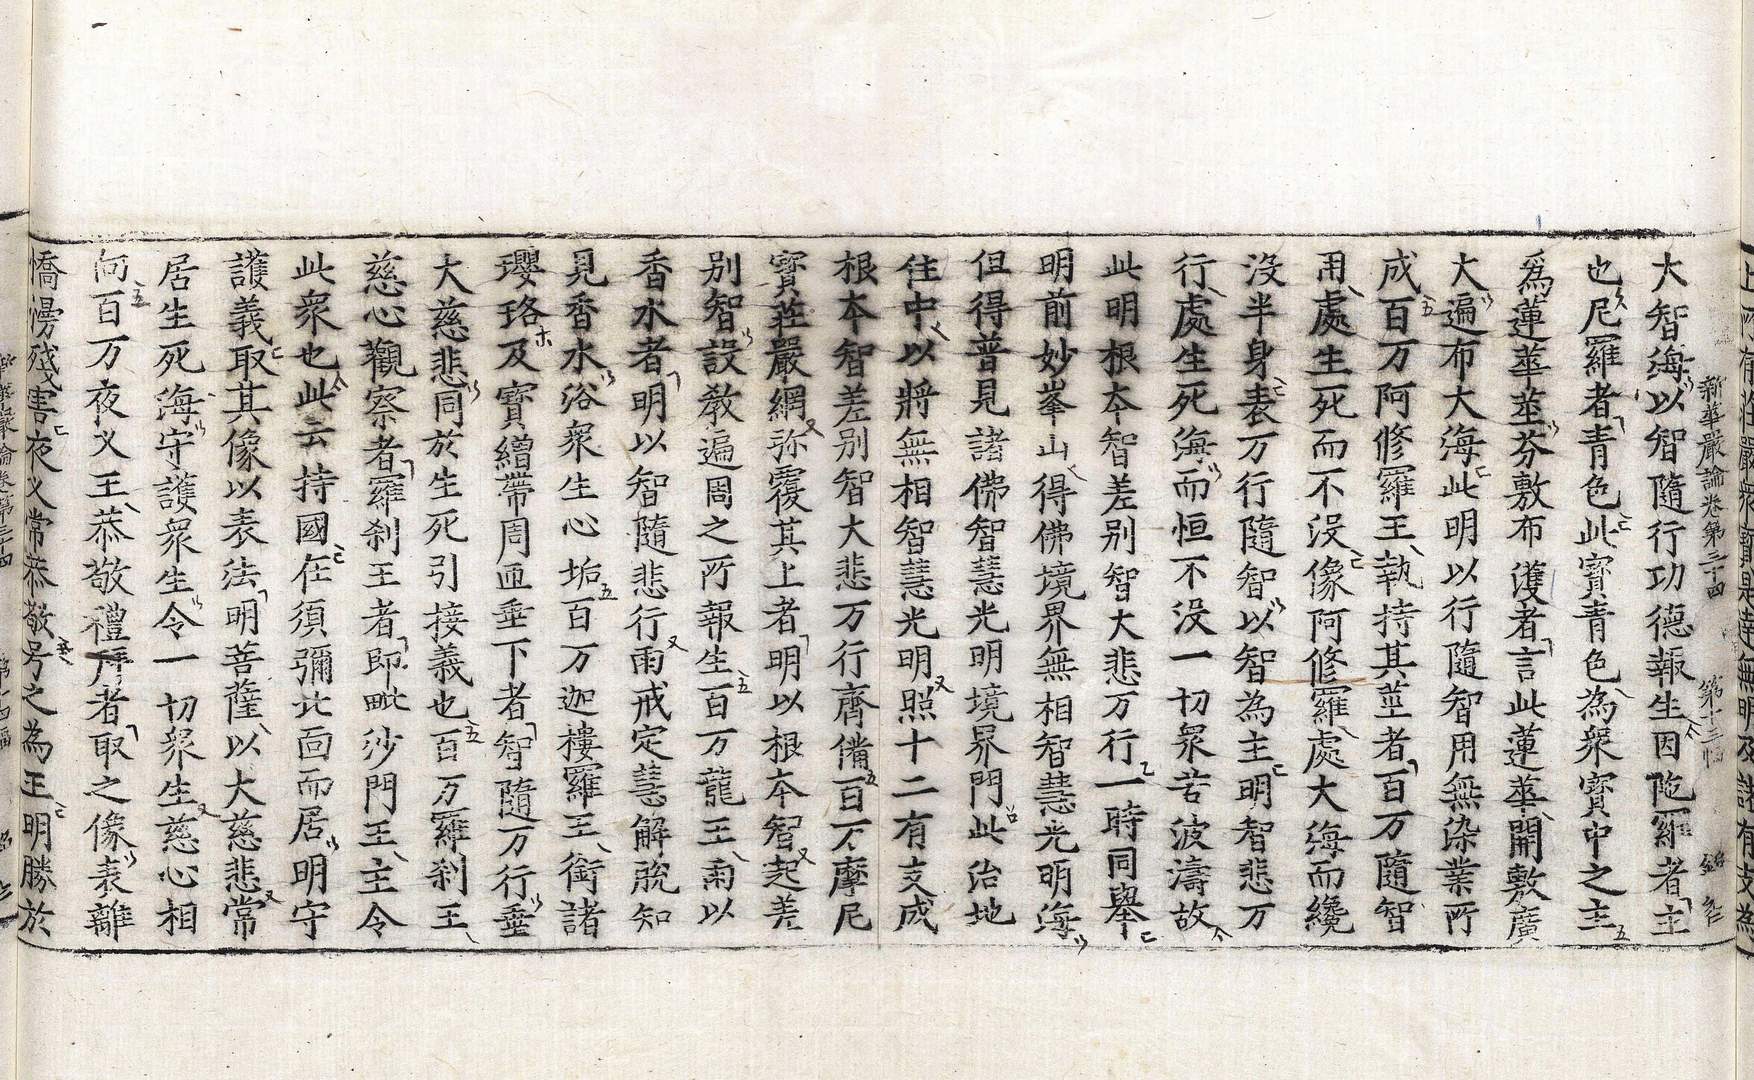 新華嚴論卷第三十四 第十三幅
大智海以智隨行功德報生因陁羅者主
也尼羅者青色此寶青色為衆寶中之主
爲蓮華莖芬敷布濩者言此蓮華開敷廣
大遍布大海此明以行隨智用無染業所
成百万阿修羅王執持其莖者百万隨智
用處生死而不没像阿修羅處大海而纔
没半身表万行隨智以智為主明智悲万
行處生死海而恒不没一切衆苦波濤故
此明根本智差别智大悲万行一時同舉
明前妙峯山得佛境界無相智慧光明海
但得普見諸佛智慧光明境界門此治地
住中以將無相智慧光明照十二有支成
根本智差别智大悲万行齊備百万摩尼
寶莊嚴網弥覆其上者明以根本智起差
别智設教遍周之所報生百万龍王雨以
香水者明以智隨悲行雨戒定慧解脫知
見香水浴衆生心垢百万迦樓羅王銜諸
瓔珞及寶繒帶周迊垂下者智隨万行垂
大慈悲同於生死引接義也百万羅刹王
慈心觀察者羅刹王者即毗沙門王主令
此衆也此云持國在須彌北面而居明守
護義取其像以表法明菩薩以大慈悲常
居生死海守護衆生令一切衆生慈心相
向百万夜叉王恭敬禮拜者取之像表離
憍慢殘害夜叉常恭敬号之為王明勝於